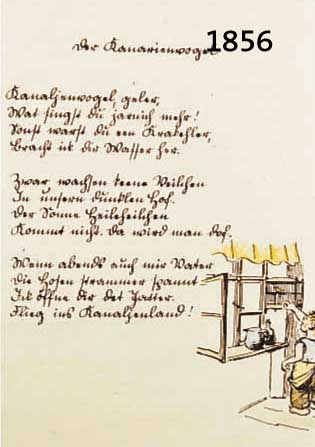 Der Kanarienvogel
1856
Kanaljenvogel, geler,
Wat singst du jarnich mehr!
Sonst warst du een Krakehler,
Bracht ick dir Wasser her.
Zwar wachsen keene Veilchen
In unsern dunklen Hof.
Der Sonne Heileheilchen
Kommt nicht. Da wird man dof.
Wenn abends auch mir Vater
Die Hosen strammer spannt
Ick öffne dir det Jatter.
Flieg ins Kanaljenland!